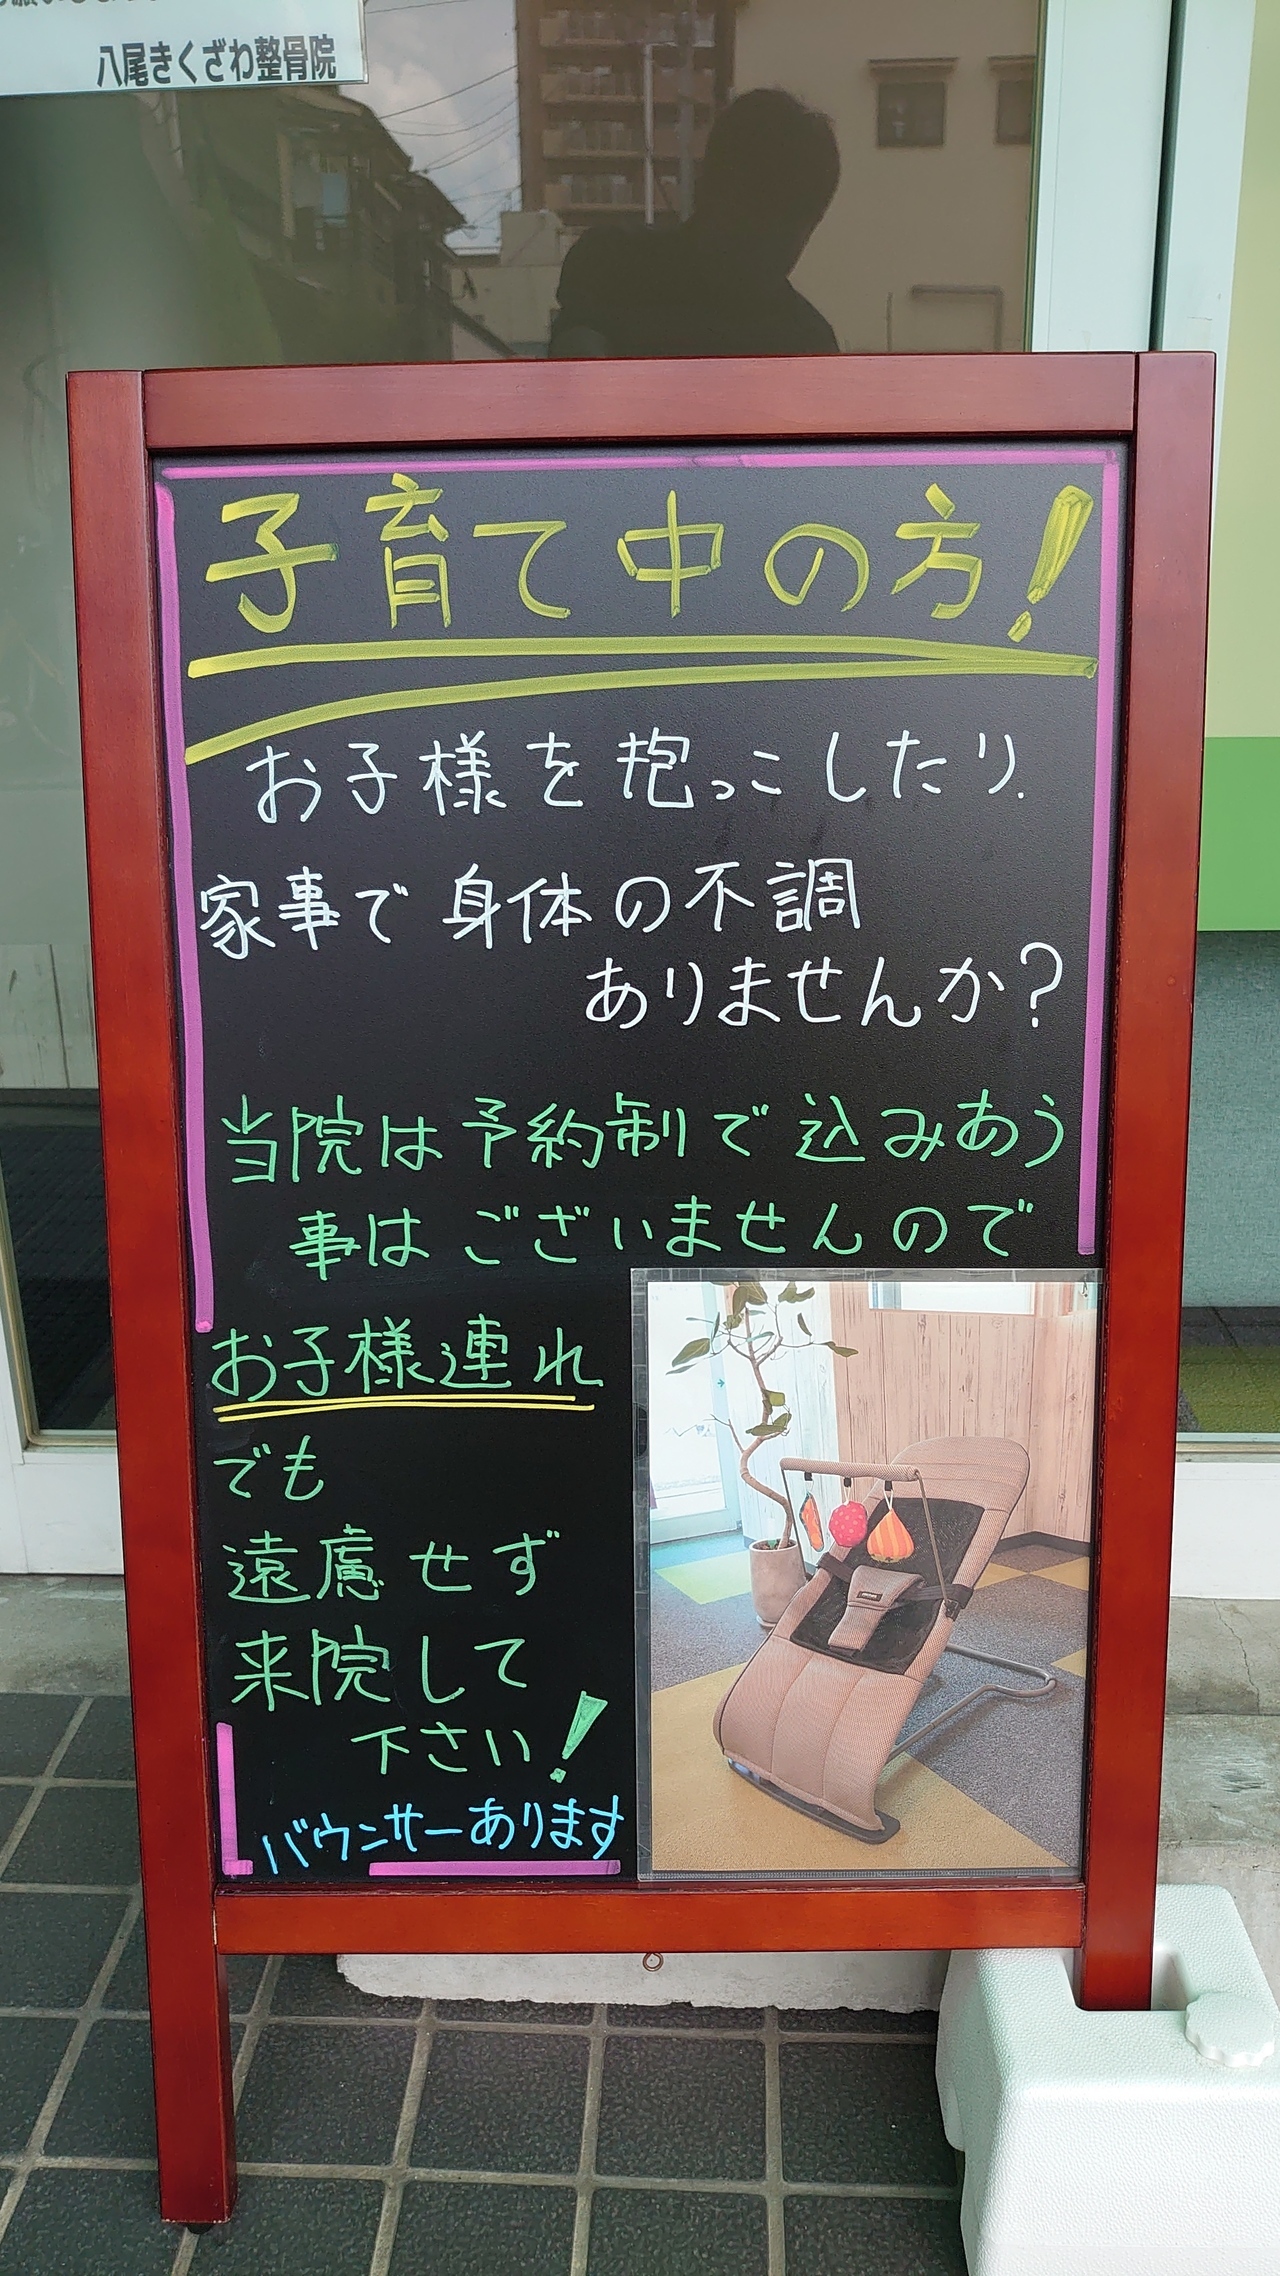 八尾きくざわ整骨院
子育て中の方!
お子様を抱っこしたり、
家事で身体の不調
ありませんか?
当院は予約制で込みあう
事はございませんので
お子様連れ
でも
遠慮せず
来院して
下さい!
バウンサーあります